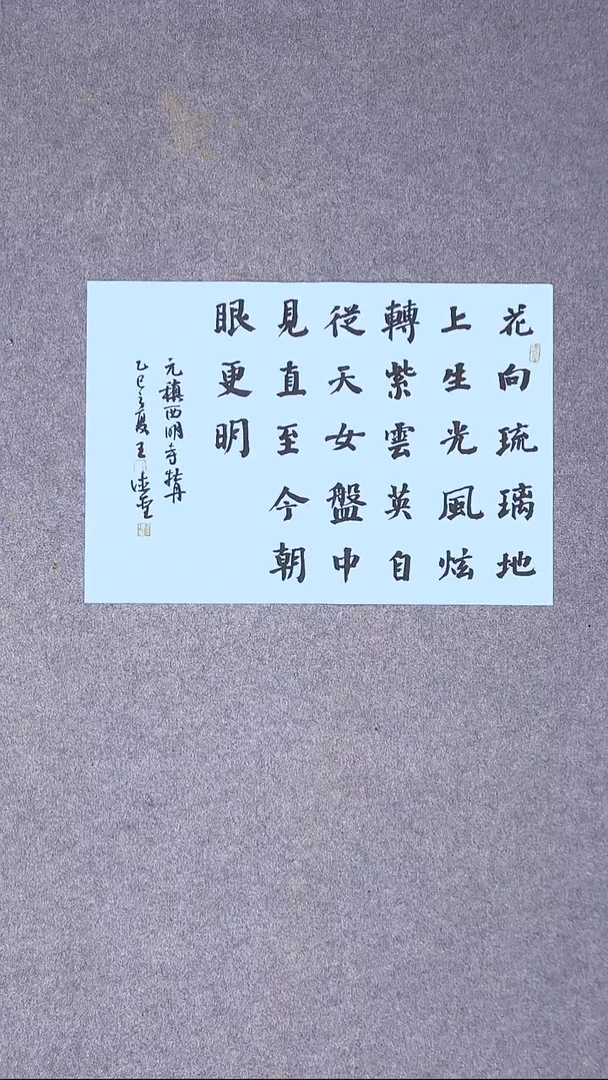 花向琉璃地
上生光風炫
轉紫雲英自
從天女盤中
見直至今朝
眼更明
元稹西明寺牡丹
乙巳之夏王